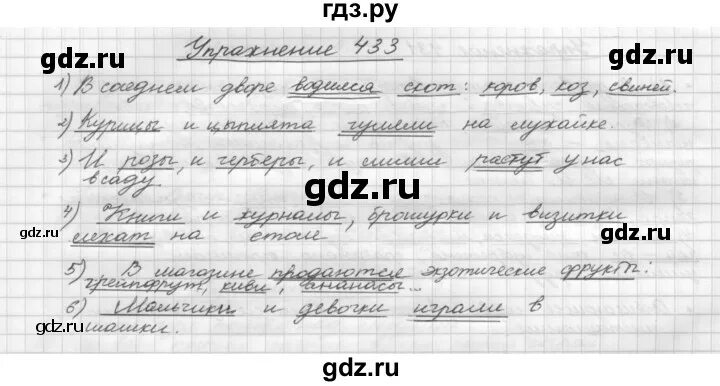 гдз.ру
gdz.ru
gdz.ru
Упражнение 433
1) В соседнем дворе водился скот: коров, коз, свиней.
2) Курицы и цыплята гуляли на лужайке.
3) И розы, и герберы, и лилии растут у нас
в саду.
gdz.ru
4) Книги и журналы, брошурки и визитки
лежат на столе
gdz.ru
gdz.ru
5) В магазине продаются экзотические фрукты:
грейпфрут, киви, ананасы...
6) Мальчики и девочки играли в
шашки.
gdz.ru
gdz.ru
gdz.ru